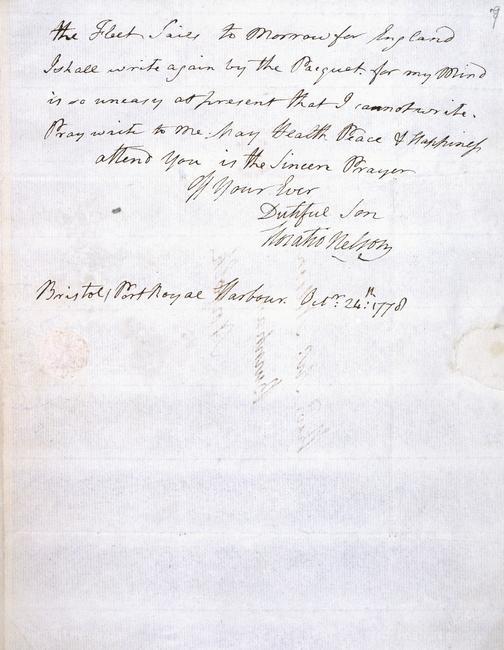 9
the Fleet Sails to Morrow for England
I shall write again by the Pacquet. for my Mind
is so uneasy at present that I cannot write.
Pray write to me. May Health Peace & Happiness
attend You is the Sincere Prayer
Of Your Ever
Dutiful Son
Horatio Nelson
Bristol, Port Royal Harbour. Octr. 24th: 1778